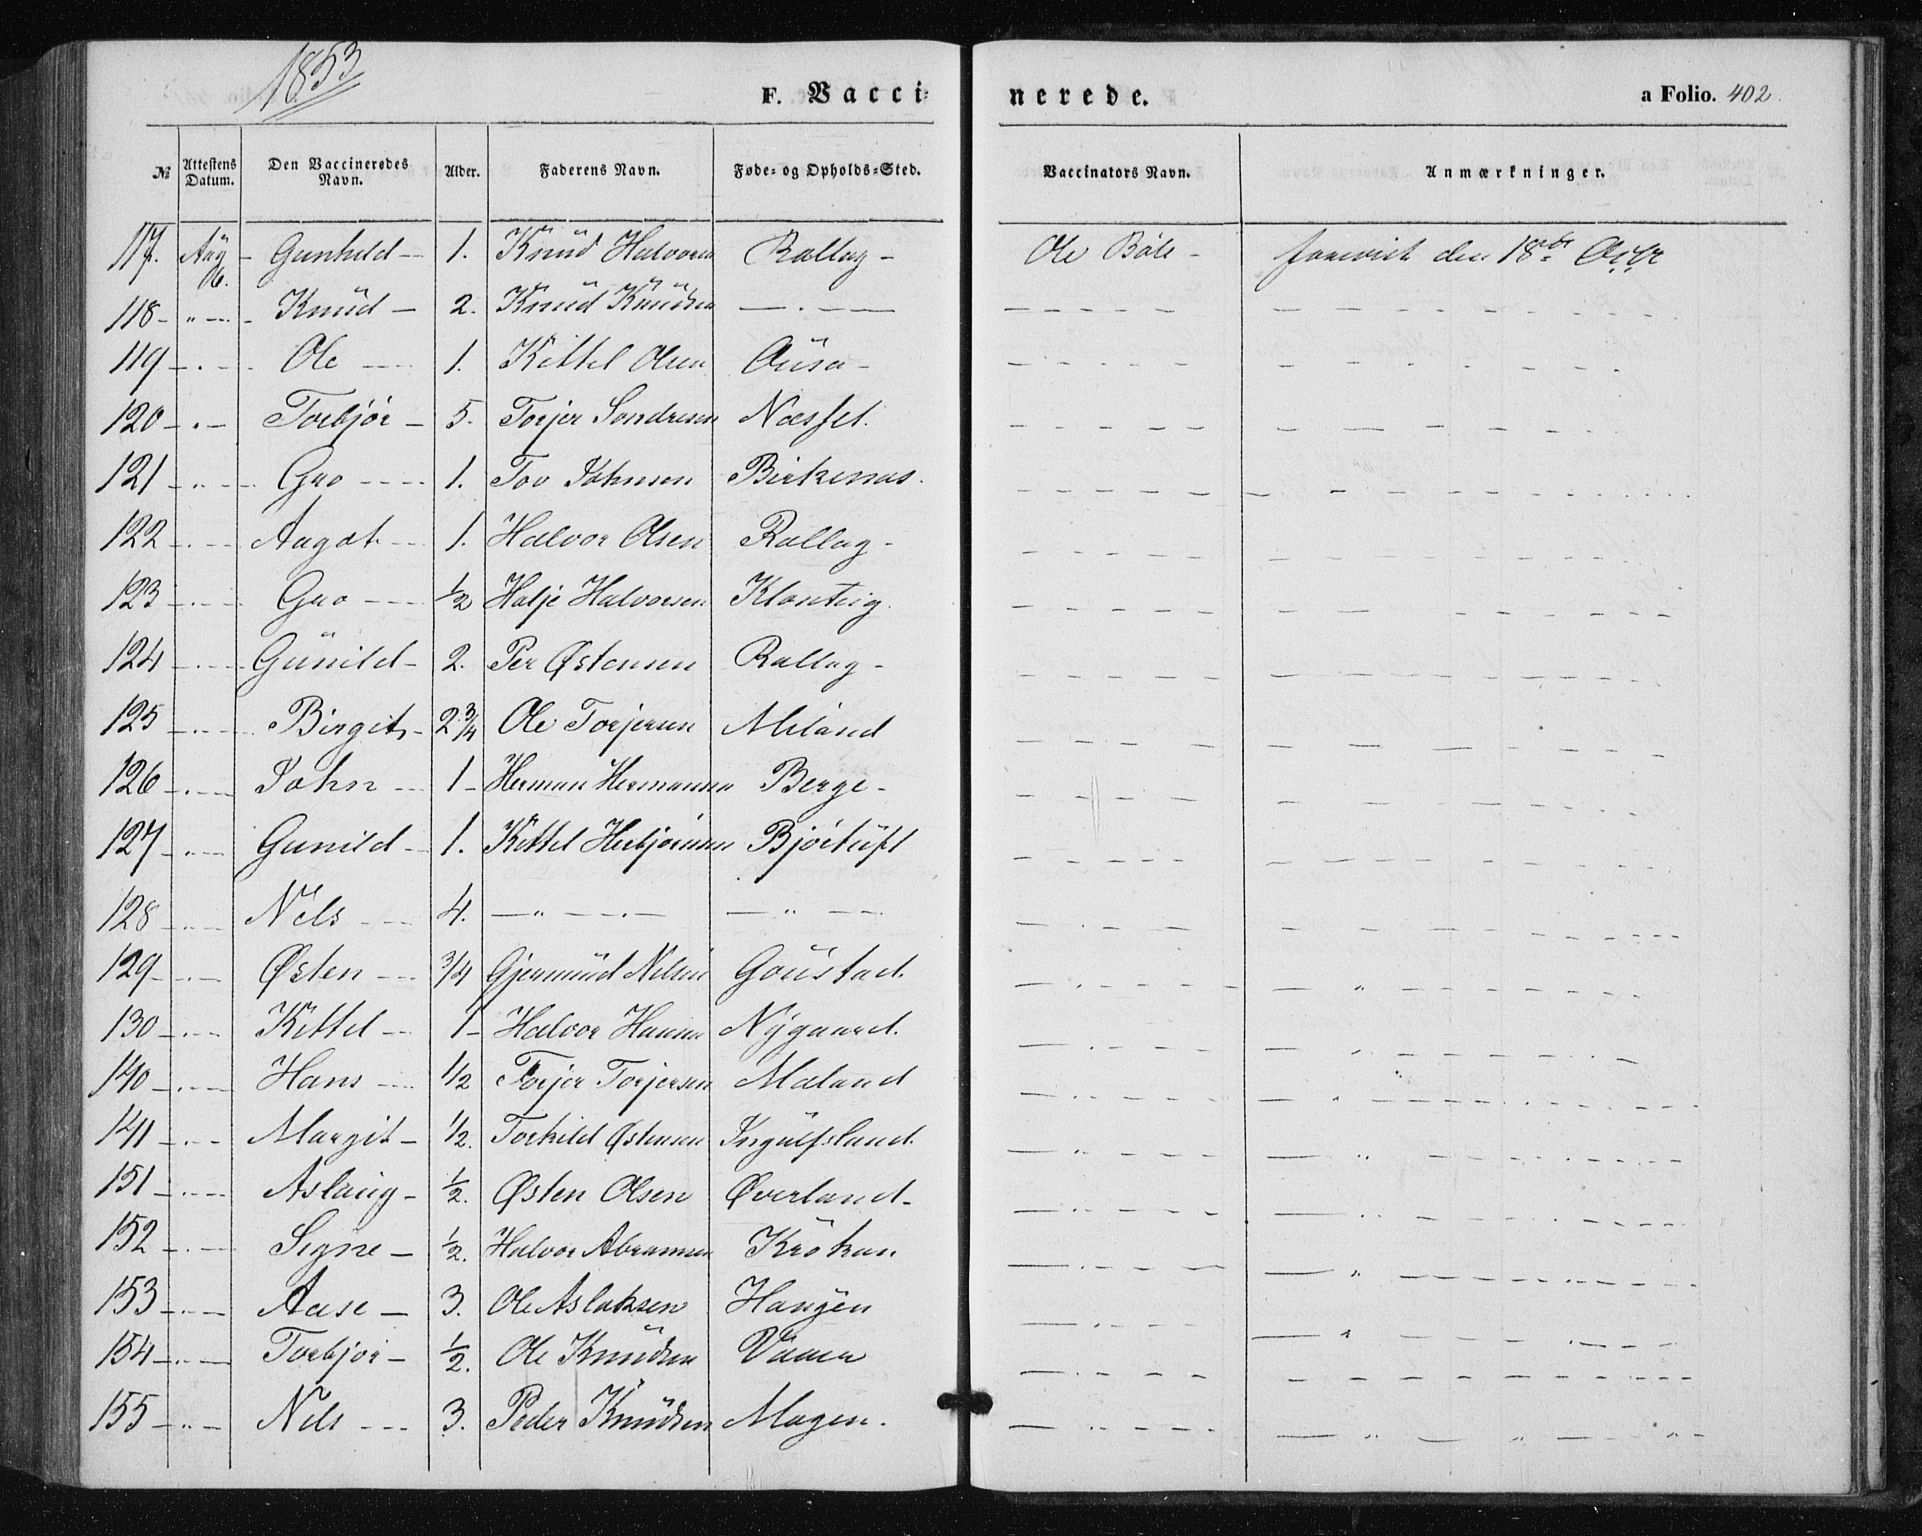 1853
F. Vacci- nerede. a Folio. 402.
№ Attestens Datum. Den Vaccineredes Navn. Alder. Faderens Navn. Føde- og Opholds-Sted. Vaccinators Navn. Anmærkninger.
117. Aug 16. - Gunhild - 1. Knud Halvorsen Rollag - Ole Böle - forevist den 18de
118 - " - Knud - 2. Knud Knudsen — . —
119 - . - Ole - 1. Kittel Olsen
120 - . - Torbjør - 5. Torjer Sondresen Næsset.
121 - " - Gro - 1. Tov Johnsen Birkenæs.
122 - . - Aagot - 1. Halvor Olsen Rollag -
123 - . - Gro - 1/2 Halje Halvorsen
124 - . - Gunild - 2. Per Østensen Rollag -
125 - . - Birgit - 2 3/4 Ole Torjersen Miland
126 - . - John - 1 - Herman Hermansen Berge -
127 - " - Gunild - 1. Kittel Herbjørnsen Bjørtuft
128 - . - Nils - 4. — " — . — — " —
129 - . - Østen - 3/4 Gjermund Nilsen Goustad.
130 - . - Kittel - 1 - Halvor Hansen Nygaard.
140 - . - Hans - 1/2 Torjer Torjersen Mæland
141 - . - Margit - 1/2. Torkild Østensen Ingulfsland.
151 - . - Aslaug - 1/2. Østen Olsen Øverland -
152 - . - Signe - 1/2. Halvor Abramsen Krokan
153 - . - Aase - 3. Ole Aslaksen Haugen
154 - . - Torbjør - 1/2. Ole Knudsen Vaaer
155 - " - Nils - 3. Peder Knudsen Mogen.